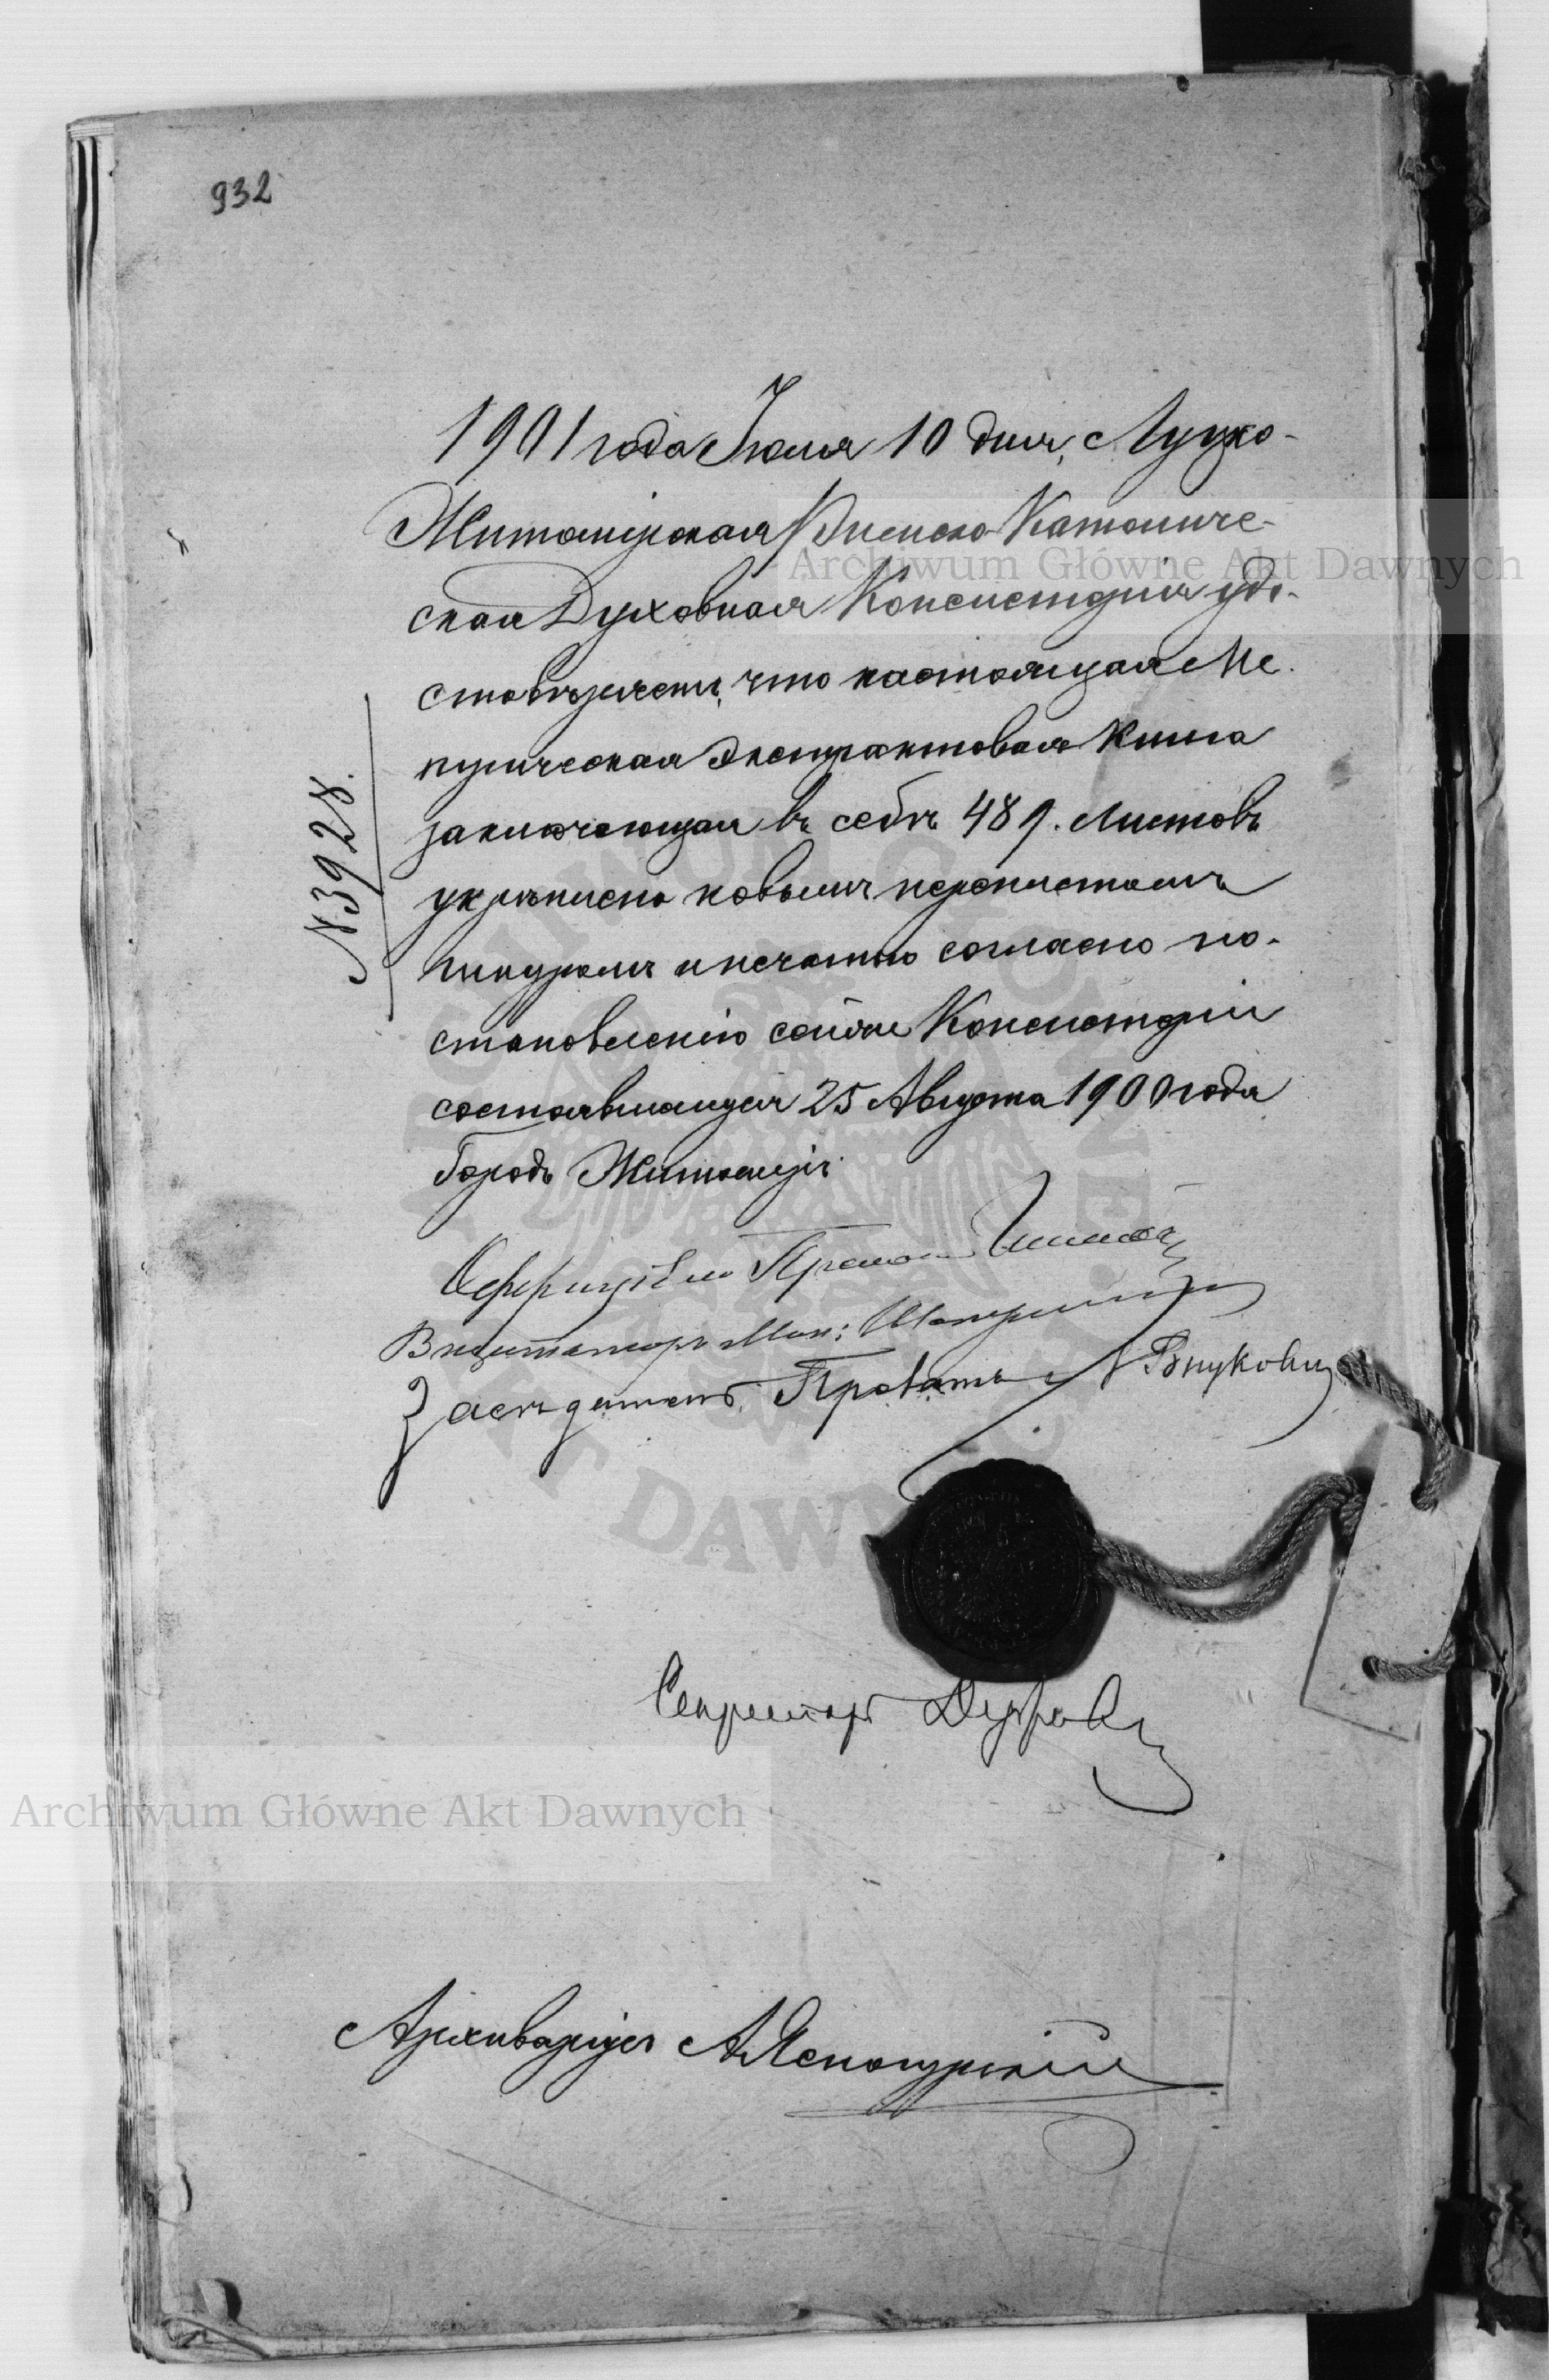 932
1901 года Іюля 10 дня, Луцко-
Житомірская Римско-Католиче-
ская Духовная Консисторія удо-
стовѣряетъ, что настоящая Ме-
трическая Экстрактовая книга
заключающая въ себѣ 489. листовъ
укрѣплена новымъ
шнуромъ и печатью согласно по-
становленію сей же Консисторіи
состоявшагося 25 Августа 1900 года
Городъ Житомиръ.
N 3928.
Оффиціалъ Прелатъ
Визитаторъ Мон:
Засѣдатель, Прелатъ
Секретарь
Архиваріусъ А Ясногурскій
Archiwum Główne Akt Dawnych
Archiwum Główne Akt Dawnych